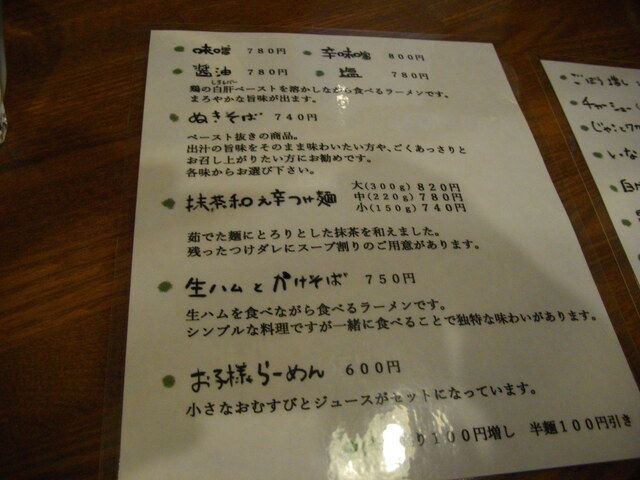 味噌 780円 辛味噌 800円
醤油 780円 塩 780円
鶏の白肝ペーストを溶かしながら食べるラーメンです。
まろやかな旨味が出ます。
ぬきそば 740円
ペースト抜きの商品。
出汁の旨味をそのまま味わいたい方や、ごくあっさりと
お召し上がりたい方にお勧めです。
各味からお選び下さい。
抹茶和え辛つけ麺 大(300g) 820円
中(220g) 780円
小(150g) 740円
茹でた麺にとろりとした抹茶を和えました。
残ったつけダレにスープ割りのご用意があります。
生ハムとかけそば 750円
生ハムを食べながら食べるラーメンです。
シンプルな料理ですが一緒に食べることで独特な味わいがあります。
お子様らーめん 600円
小さなおむすびとジュースがセットになっています。
100円増し 半麺100円引き
ごぼう増し
チャシュー